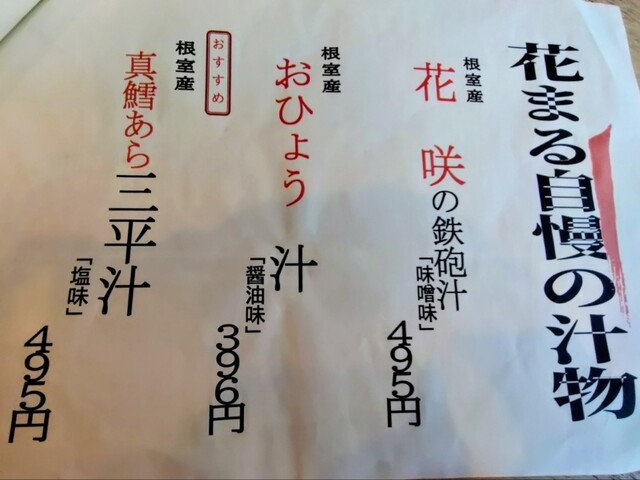 花まる自慢の汁物
根室産
花咲の鉄砲汁
「味噌味」
495円
根室産
おひょう汁
「醤油味」
396円
おすすめ
根室産
真鱈あら三平汁
「塩味」
495円